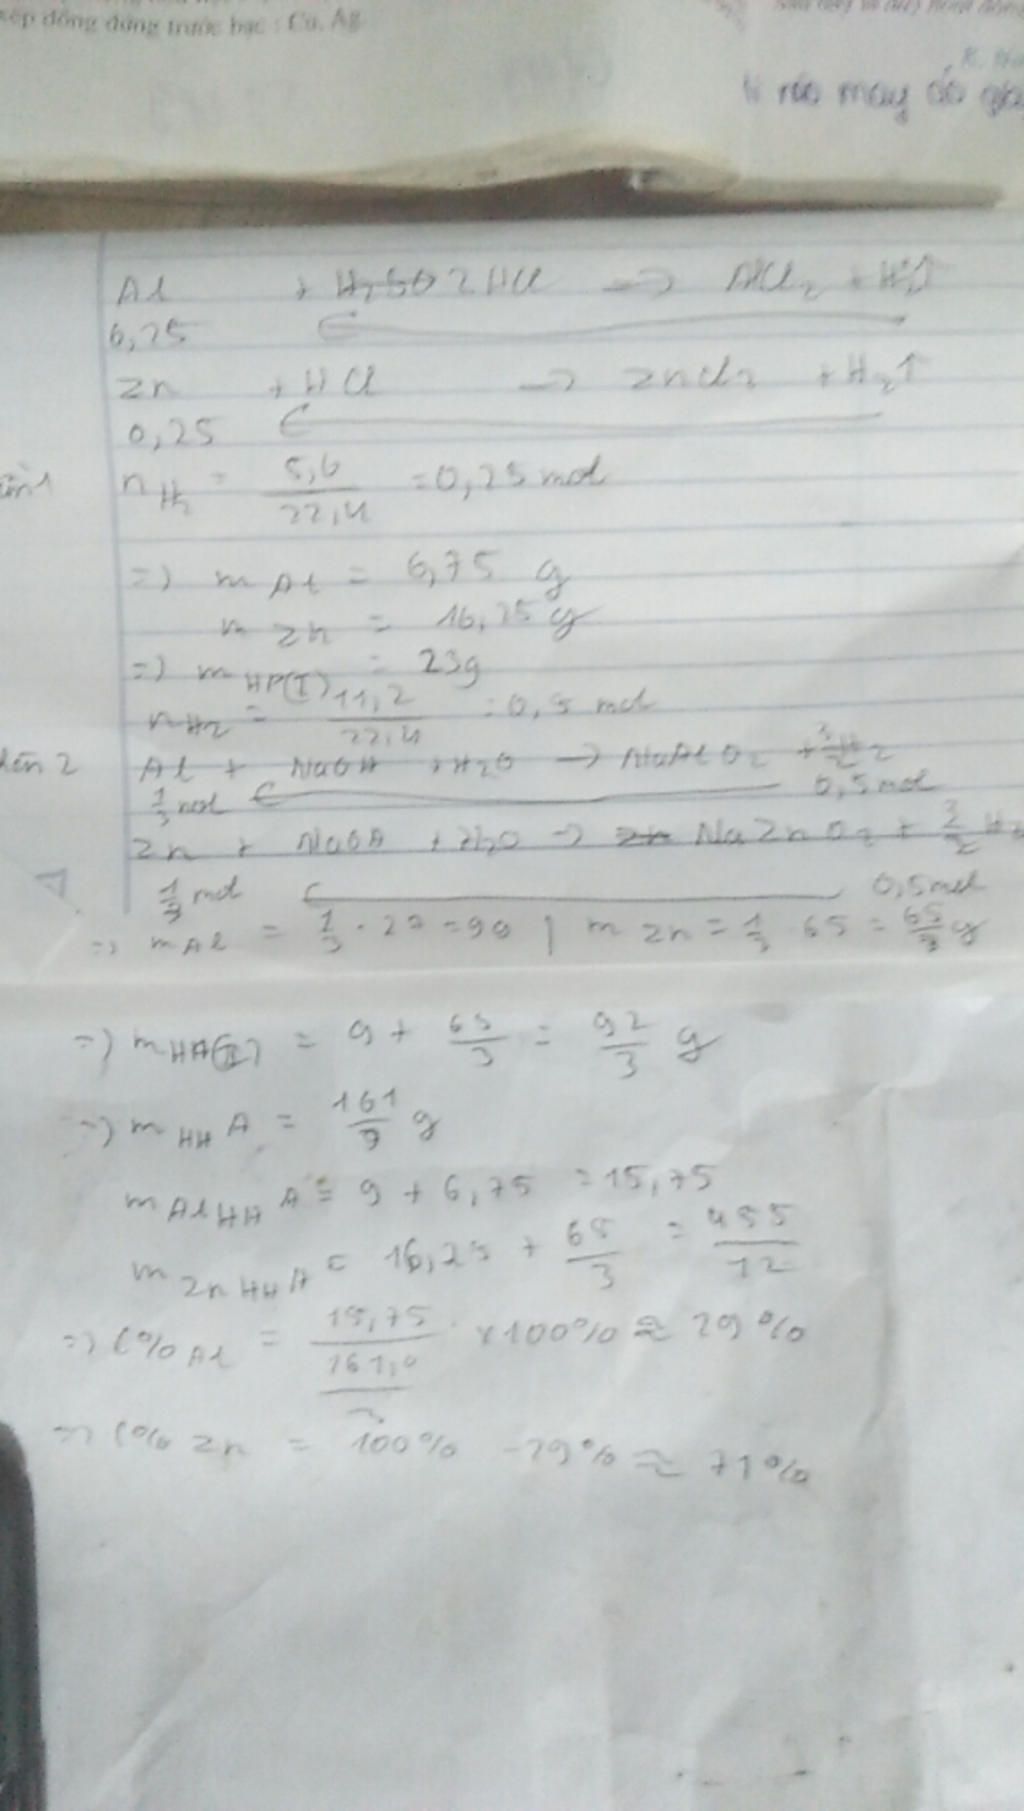 xếp đồng đứng trước bạc : Cu, Ag
may đo
Al + H₂SO 2HCl → AlCl₂ + H₂↑
0,25
Zn + HCl → ZnCl₂ + H₂↑
0,25
n H₂ = 5,6/22,4 = 0,25 mol
=> m Al = 6,75 g
m Zn = 16,25 g
=> m HP(I) = 23g
n H2 = 11,2/22,4 = 0,5 mol
2 Al + NaOH + H₂O → NaAlO₂ + 3/2 H₂
1/3 mol 0,5 mol
Zn + NaOH + H₂O → Zn NaZnO₂ + 3/2 H₂
1/3 mol 0,5 mol
=> m Al = 1/3 · 27 = 9g | m Zn = 1/3 · 65 = 65/3 g
=> m = 9 + 65/3 = 92/3 g
=> m HH A = 161/3 g
m Al HH A = 9 + 6,75 = 15,75
m Zn HH A = 16,25 + 65/3 = 455/12
=> C% Al = 15,75 / × 100% ≈ 29%
=> C% Zn = 100% - 29% ≈ 71%